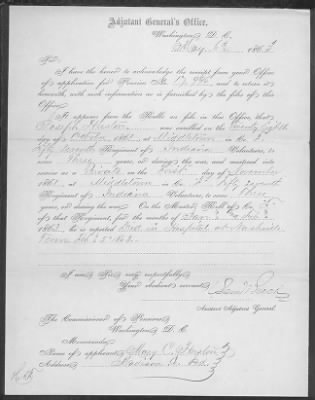 Adjutant General's Office,
Washington D. C.
May 186
Sir:
I have the honor to acknowledge the receipt from your Office
of application for Pension No. and to return it
herewith, with such information as is furnished by the files of this
Office.
It appears from the Rolls on file in this Office, that
Joseph was enrolled on the Twenty Eighth
day of October 1861 at Middletown in Co.
Fifty Seventh Regiment of Indiana Volunteers, to
serve Three years, or during the war, and mustered into
service as a Private on the First day of November
1861, at Middletown in Co. Fifty Seventh
Regiment of Indiana Volunteers, to serve Three
years, or during the war. On the Muster Roll of Co.
of that Regiment, for the months of Jany & Feb
1862, he is reported Died in Hospital at Nashville
Tenn Feb 1862.
I am Sir, very respectfully,
Your obedient servant,
Assistant Adjutant General.
The Commissioner of Pensions
Washington D. C.
Memoranda:
Name of applicant, Mary C.
Address Madison Co Ind.